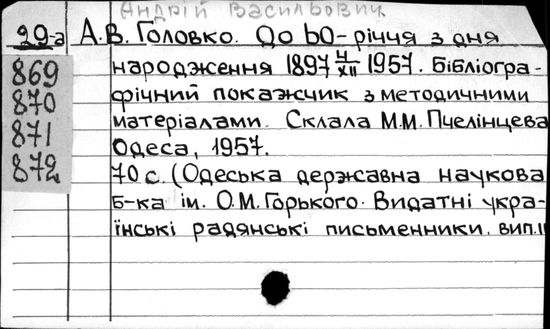 Андрій Васильович
29-а А.В. Головко. До 60-річчя з дня
869 народження 1897 4/XII 1957. Бібліогра-
870 фічний покажчик з методичними
871 матеріалами. Склала М.М. Пчелінцева
Одеса, 1957.
872 70 с. (Одеська державна наукова
б-ка ім. О.М. Горького. Видатні укра-
їнські радянські письменники. вип. II